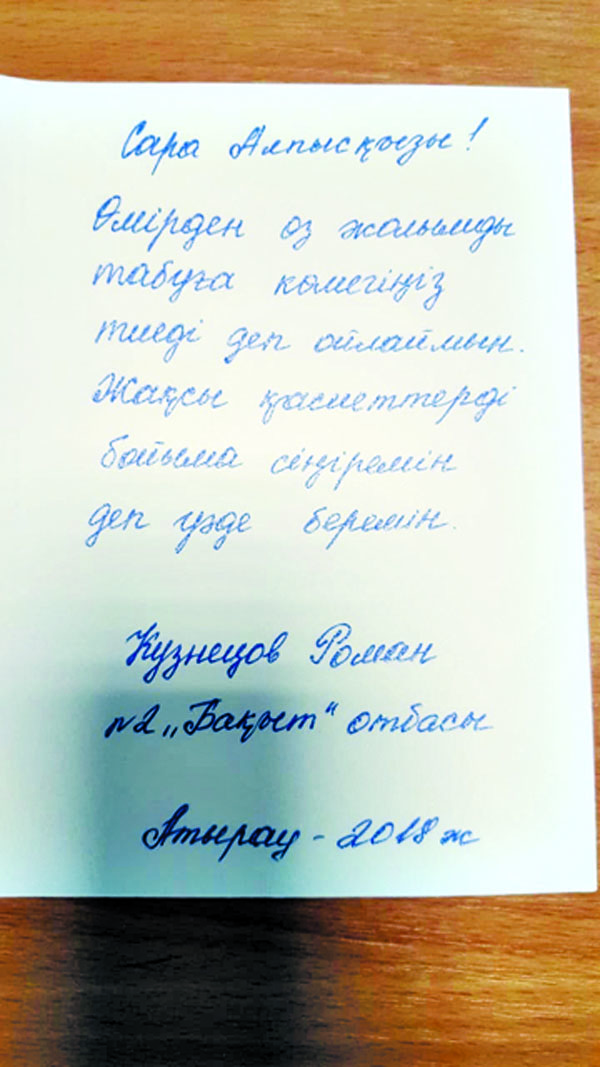 Сара Алпысқызы!
Өмірден өз жолымды
табуға көмегіңіз
тиеді деп ойлаймын.
Жақсы қасиеттерді
бойыма сіңіремін
деп уәде беремін.
Кузнецов Роман
№2 „Бақыт“ отбасы
Атырау - 2018 ж